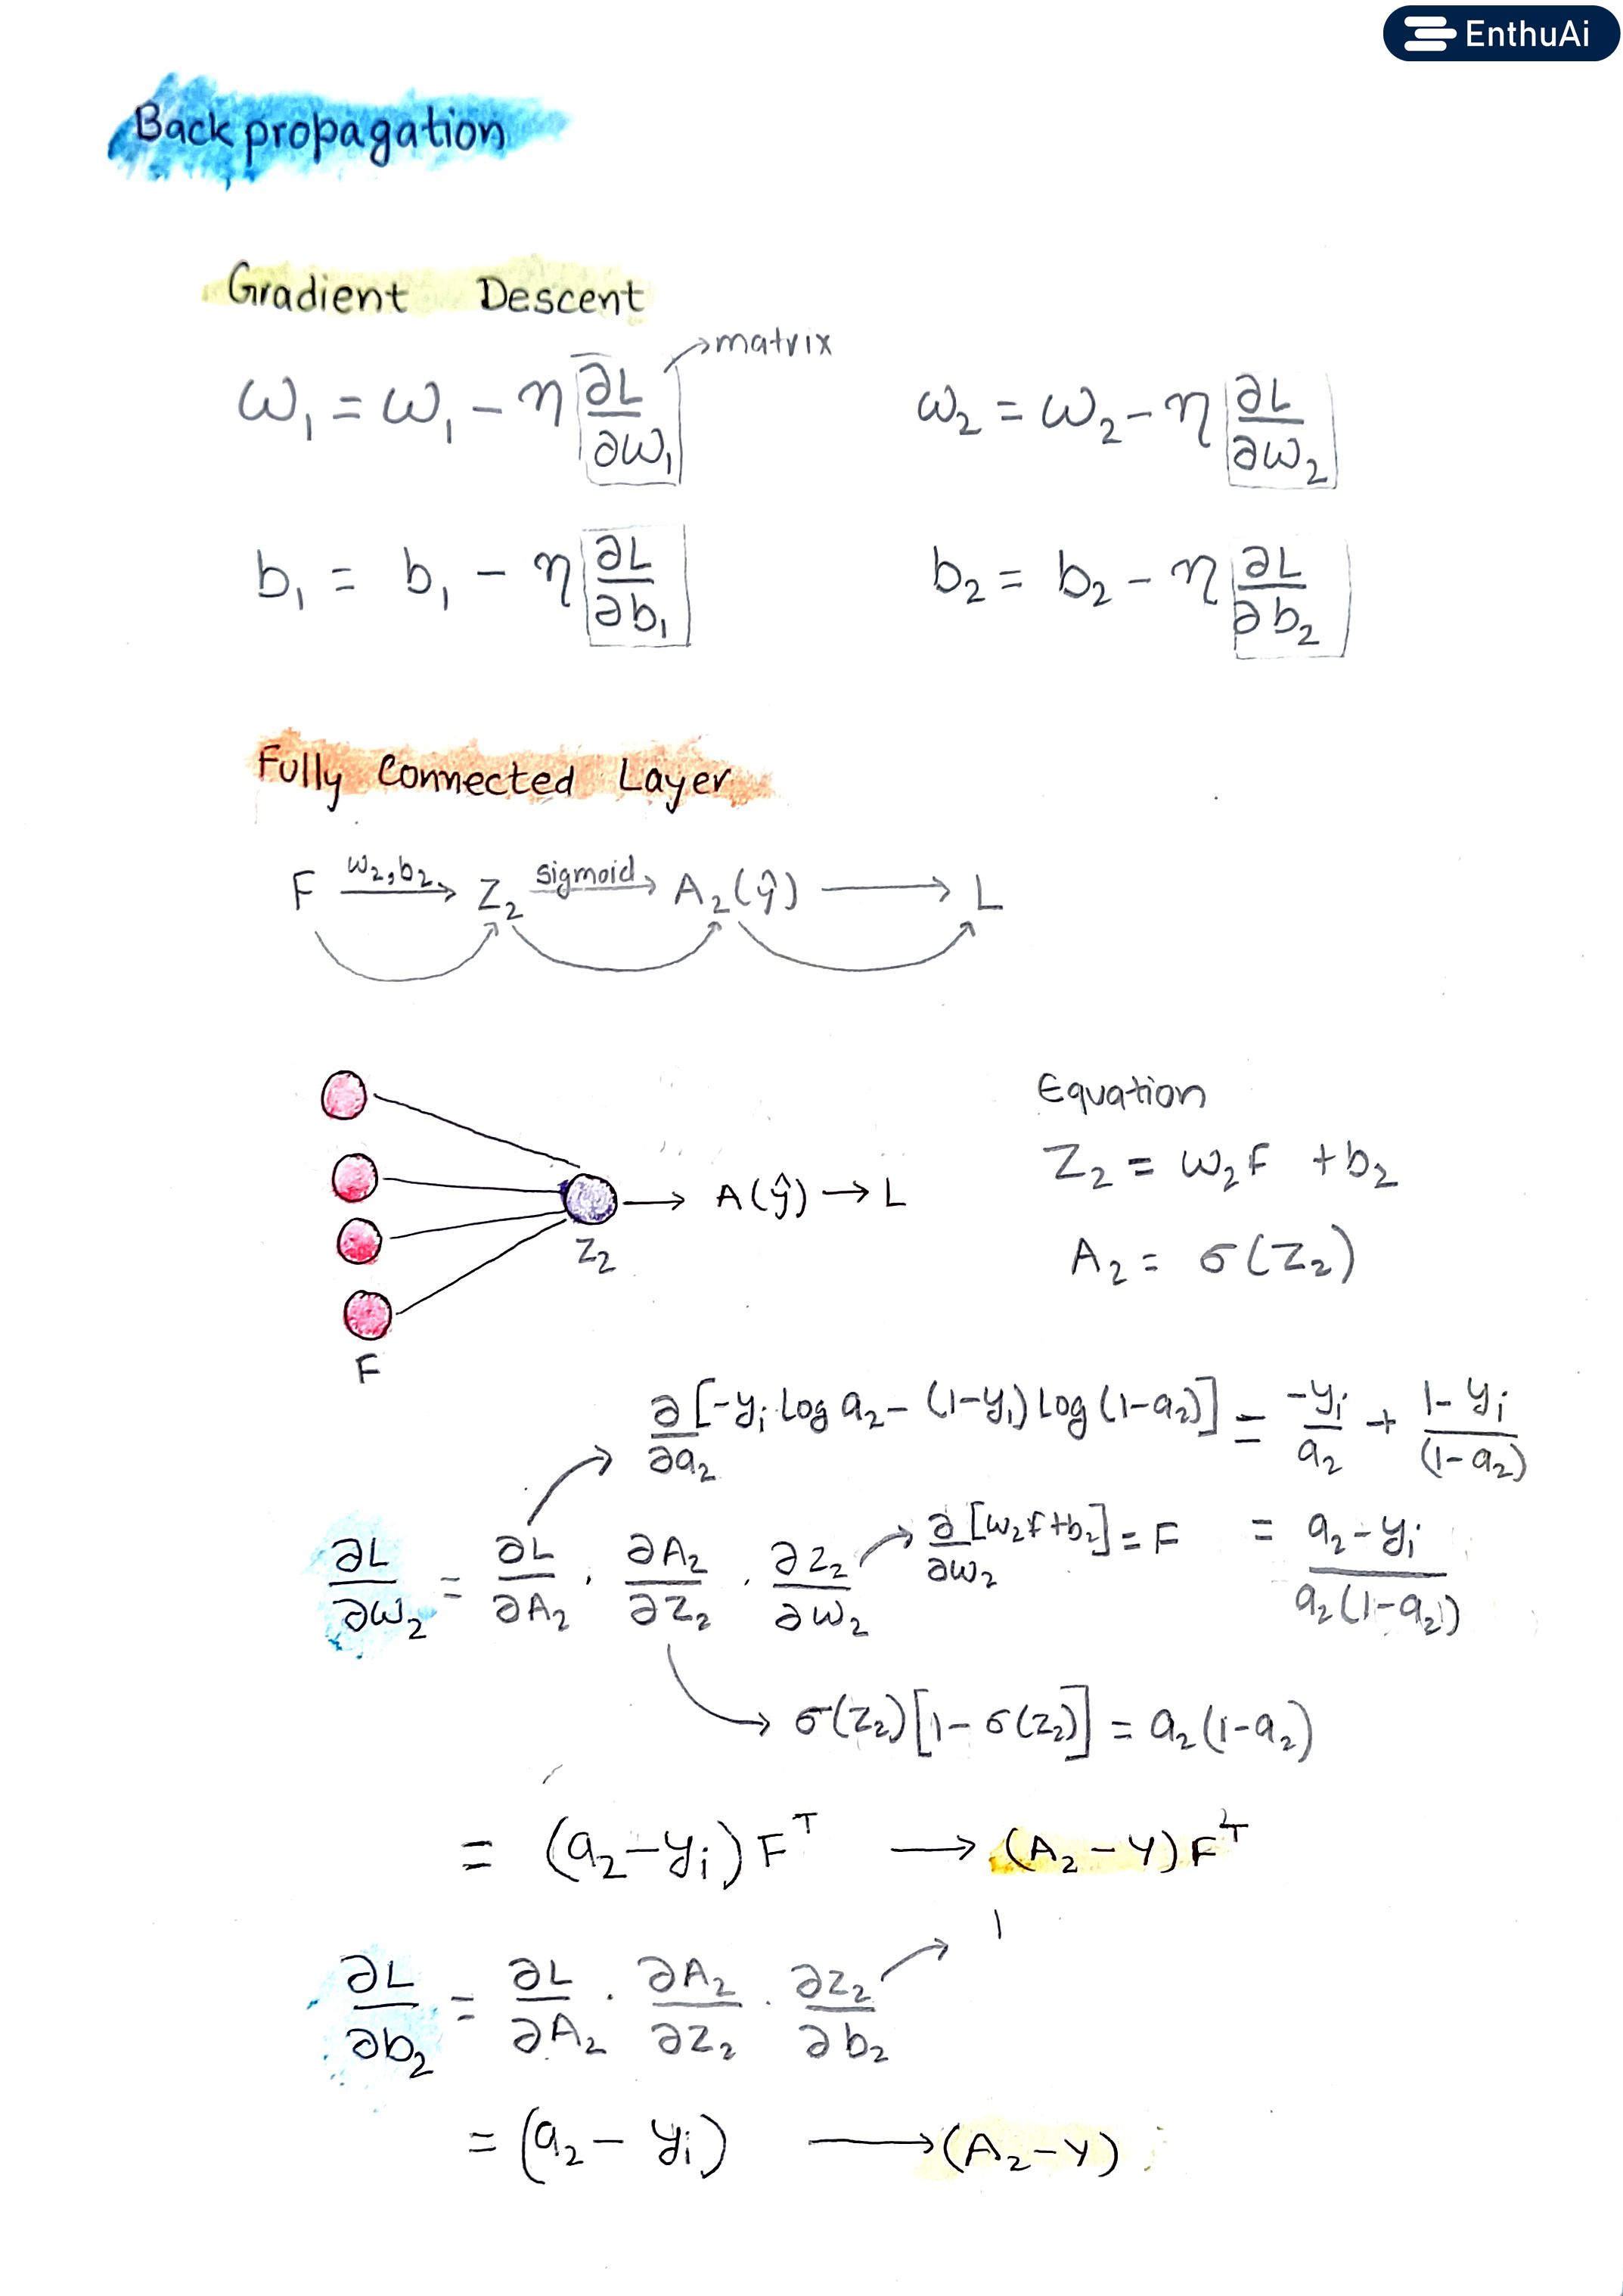 EnthuAi
Backpropagation
Gradient Descent
→matrix
ω₁ = ω₁ - η ∂L/∂ω₁
ω₂ = ω₂ - η ∂L/∂ω₂
b₁ = b₁ - η ∂L/∂b₁
b₂ = b₂ - η ∂L/∂b₂
Fully Connected Layer
F —ω₂,b₂→ Z₂ —sigmoid→ A₂(ŷ) → L
Equation
Z₂ = ω₂F + b₂
A₂ = σ(Z₂)
A(ŷ) → L
Z₂
F
∂/∂a₂ [-yᵢ log a₂ - (1-yᵢ) log (1-a₂)] = -yᵢ/a₂ + 1-yᵢ/(1-a₂)
∂L/∂ω₂ = ∂L/∂A₂ . ∂A₂/∂Z₂ . ∂Z₂/∂ω₂ → ∂/∂ω₂ [ω₂F+b₂] = F
= a₂-yᵢ/a₂(1-a₂)
→ σ(Z₂)[1-σ(Z₂)] = a₂(1-a₂)
= (a₂-yᵢ)Fᵀ → (A₂-Y)Fᵀ
1
∂L/∂b₂ = ∂L/∂A₂ . ∂A₂/∂Z₂ . ∂Z₂/∂b₂
= (a₂ - yᵢ) → (A₂-Y)